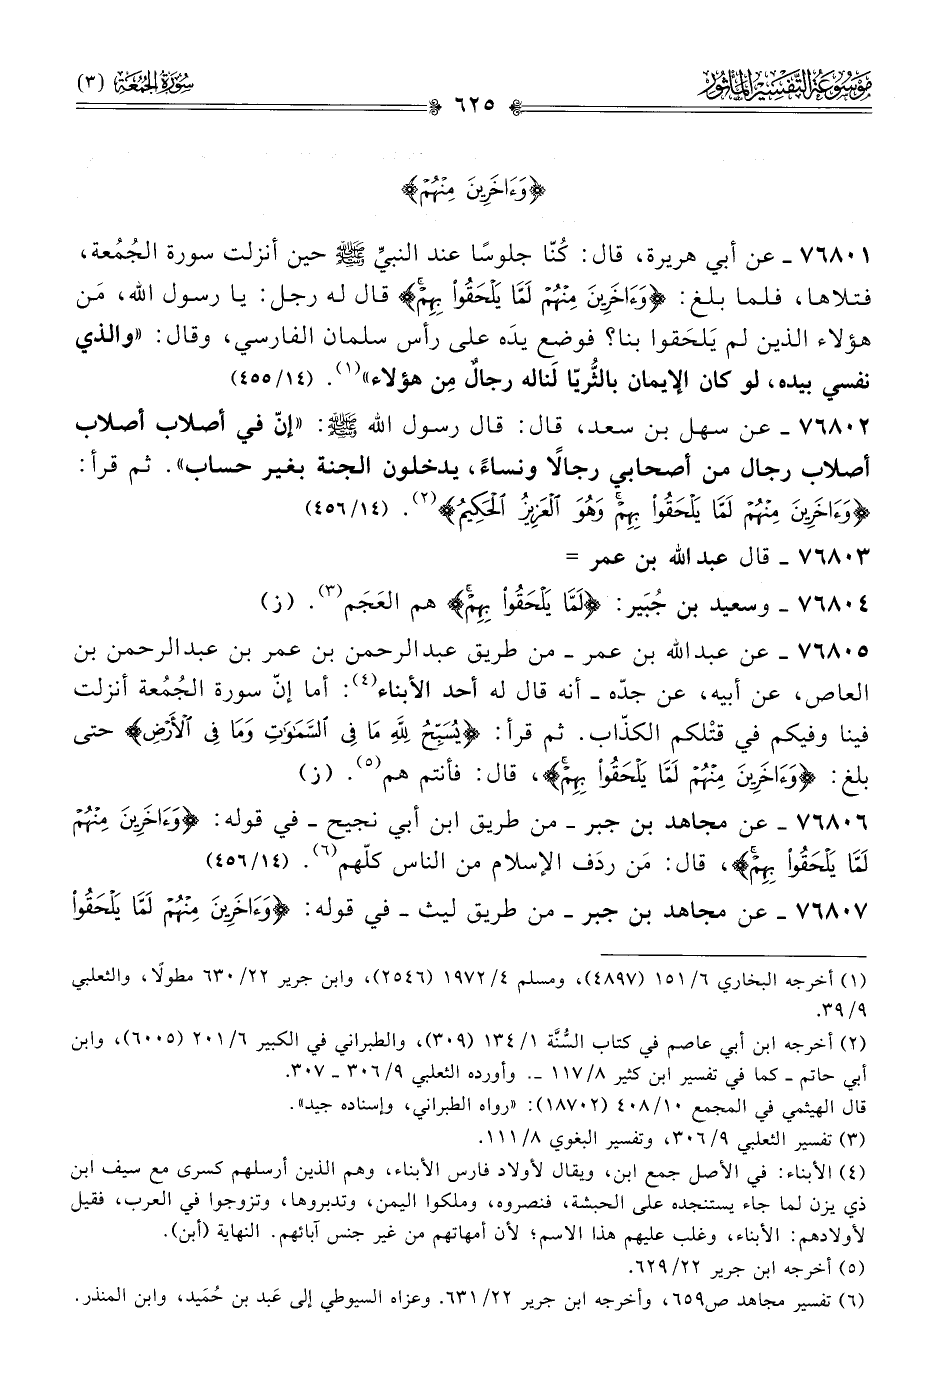 موسوعة التفسير المأثور
٦٢٥
سورة الجمعة (٣)
﴿وَءَاخَرِينَ مِنْهُمْ﴾
٧٦٨٠١ ـ عن أبي هريرة، قال: كُنّا جلوسًا عند النبيِّ ﷺ حين أنزلت سورة الجُمُعة،
فتلاها، فلما بلغ: ﴿وَءَاخَرِينَ مِنْهُمْ لَمَّا يَلْحَقُوا۟ بِهِمْۚ﴾ قال له رجل: يا رسول الله، مَن
هؤلاء الذين لم يَلحَقوا بنا؟ فوضع يدَه على رأس سلمان الفارسي، وقال: «والذي
نفسي بيده، لو كان الإيمان بالثُّريّا لَناله رجالٌ مِن هؤلاء»(١). (٤٥٥/١٤)
٧٦٨٠٢ ـ عن سهل بن سعد، قال: قال رسول الله ﷺ: «إنّ في أصلاب أصلاب
أصلاب رجال من أصحابي رجالًا ونساءً، يدخلون الجنة بغير حساب». ثم قرأ:
﴿وَءَاخَرِينَ مِنْهُمْ لَمَّا يَلْحَقُوا۟ بِهِمْۚ وَهُوَ ٱلْعَزِيزُ ٱلْحَكِيمُ﴾(٢). (٤٥٦/١٤)
٧٦٨٠٣ ـ قال عبد الله بن عمر =
٧٦٨٠٤ ـ وسعيد بن جُبَير: ﴿لَمَّا يَلْحَقُوا۟ بِهِمْۚ﴾ هم العَجَم(٣). (ز)
٧٦٨٠٥ ـ عن عبد الله بن عمر ـ من طريق عبد الرحمن بن عمر بن عبد الرحمن بن
العاص، عن أبيه، عن جدّه ـ أنه قال له أحد الأبناء(٤): أما إنّ سورة الجُمُعة أنزلت
فينا وفيكم في قتْلكم الكذّاب. ثم قرأ: ﴿يُسَبِّحُ لِلَّهِ مَا فِى ٱلسَّمَـٰوَٰتِ وَمَا فِى ٱلْأَرْضِ﴾ حتى
بلغ: ﴿وَءَاخَرِينَ مِنْهُمْ لَمَّا يَلْحَقُوا۟ بِهِمْۚ﴾، قال: فأنتم هم(٥). (ز)
٧٦٨٠٦ ـ عن مجاهد بن جبر ـ من طريق ابن أبي نجيح ـ في قوله: ﴿وَءَاخَرِينَ مِنْهُمْ
لَمَّا يَلْحَقُوا۟ بِهِمْۚ﴾، قال: مَن ردَف الإسلام من الناس كلّهم(٦). (٤٥٦/١٤)
٧٦٨٠٧ ـ عن مجاهد بن جبر ـ من طريق ليث ـ في قوله: ﴿وَءَاخَرِينَ مِنْهُمْ لَمَّا يَلْحَقُوا۟
(١) أخرجه البخاري ٦/ ١٥١ (٤٨٩٧)، ومسلم ٤/ ١٩٧٢ (٢٥٤٦)، وابن جرير ٢٢/ ٦٣٠ مطولًا، والثعلبي
٩/ ٣٩.
(٢) أخرجه ابن أبي عاصم في كتاب السُّنَّة ١/ ١٣٤ (٣٠٩)، والطبراني في الكبير ٦/ ٢٠١ (٦٠٠٥)، وابن
أبي حاتم ـ كما في تفسير ابن كثير ٨/ ١١٧ ـ. وأورده الثعلبي ٩/ ٣٠٦ ـ ٣٠٧.
قال الهيثمي في المجمع ١٠/ ٤٠٨ (١٨٧٠٢): «رواه الطبراني، وإسناده جيد».
(٣) تفسير الثعلبي ٩/ ٣٠٦، وتفسير البغوي ٨/ ١١١.
(٤) الأبناء: في الأصل جمع ابن، ويقال لأولاد فارس الأبناء، وهم الذين أرسلهم كسرى مع سيف ابن
ذي يزن لما جاء يستنجده على الحبشة، فنصروه، وملكوا اليمن، وتدبروها، وتزوجوا في العرب، فقيل
لأولادهم: الأبناء، وغلب عليهم هذا الاسم؛ لأن أمهاتهم من غير جنس آبائهم. النهاية (أبن).
(٥) أخرجه ابن جرير ٢٢/ ٦٢٩.
(٦) تفسير مجاهد ص٦٥٩، وأخرجه ابن جرير ٢٢/ ٦٣١. وعزاه السيوطي إلى عَبد بن حُمَيد، وابن المنذر.